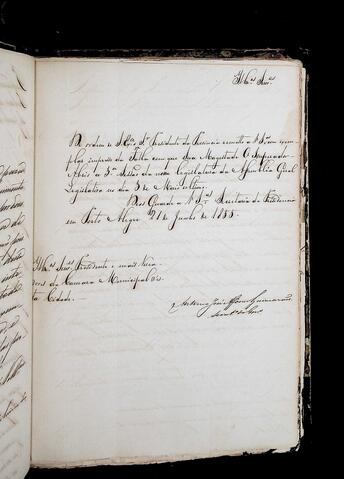 Illmos Snrs
De ordem de S. Exª o Sr. Presidente da Provincia remetto a V. Sas um exem
plar impresso da Falla com que Sua Magestade O Imperador
Abrio a 3ª Sessão da nona legislatura da Assemblea Geral
Legislativa no dia 3 de Maio ultimo.
Deos Guarde a V. Sas Secretaria da Presidencia
em Porto Alegre 21 de Junho de 1855.
Illmos Snrs Presidente e mais Verea
dores da Camara Municipal d'es
ta Cidade.
Antonio José Guimarães